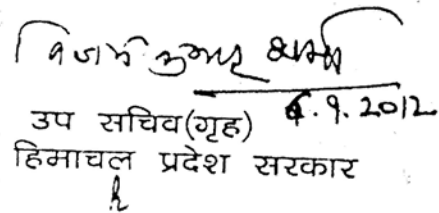 विजय कुमार शर्मा
6.9.2012
उप सचिव(गृह)
हिमाचल प्रदेश सरकार